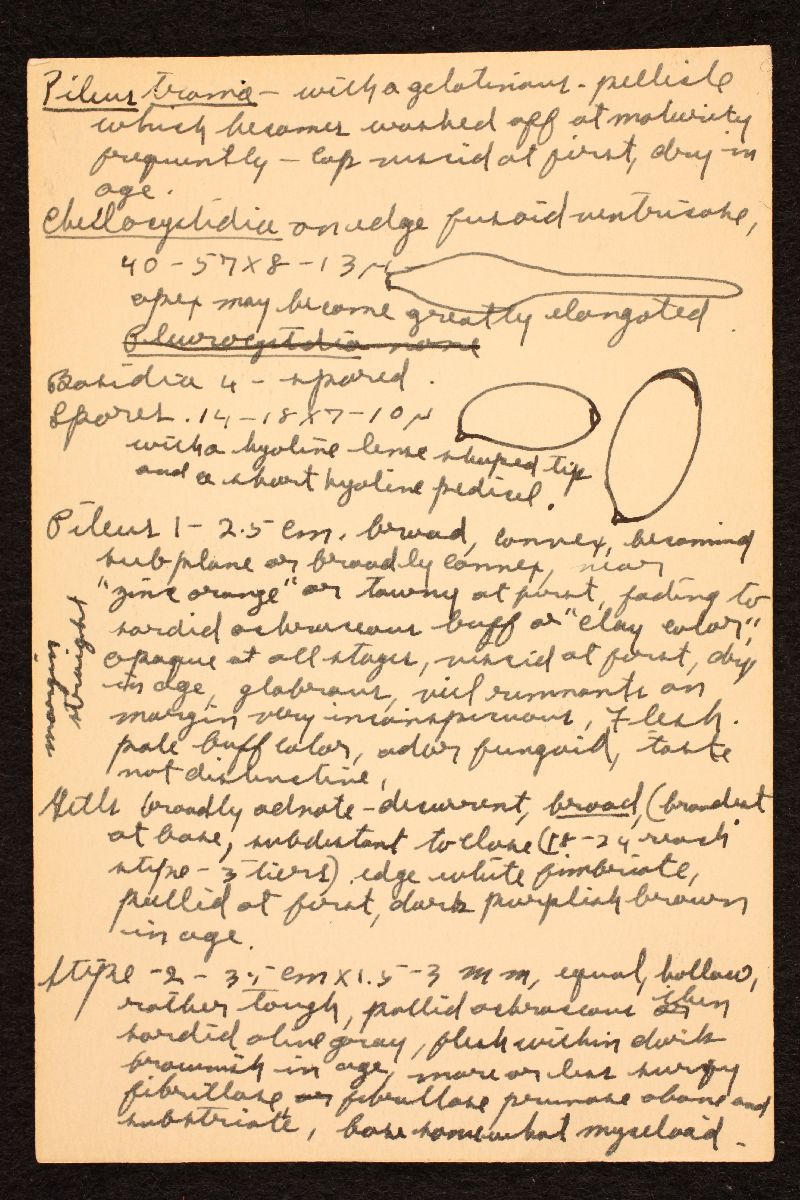 Pileus trama - with a gelatinous - pellicle
which becomes washed off at maturity
frequently - cap viscid at first, dry in
age.
Cheilocystidia on edge fusoid ventricose,
40 - 57 X 8 - 13 μ
apex may become greatly elongated.
Pleurocystidia none
Basidia 4 - spored.
Spores. 14 - 18 X 7 - 10 μ
with a hyaline lense shaped tip
and a short hyaline pedicel.
Pileus 1 - 2.5 cm. broad, convex, becoming
subplane or broadly convex, near
"zinc orange" or tawny at first, fading to
sordid ochraceous buff or "clay color",
opaque at all stages, viscid at first, dry
in age, glabrous, veil remnants on
margin very inconspicuous, Flesh.
pale buff color, odor fungoid, taste
not distinctive,
Gills broadly adnate - decurrent, broad, (broadest
at base, subdistant to close (18 - 24 reach
stipe - 3 tiers). edge white fimbriate,
pallid at first, dark purplish brown
in age.
Stipe - 2 - 3.5 cm X 1.5 - 3 mm, equal, hollow,
rather tough, pallid ochraceous then
sordid olive gray, flesh within dark
brownish in age, more or less scurfy
fibrillose or fibrillose pruinose above and
substriate, base somewhat myceloid -